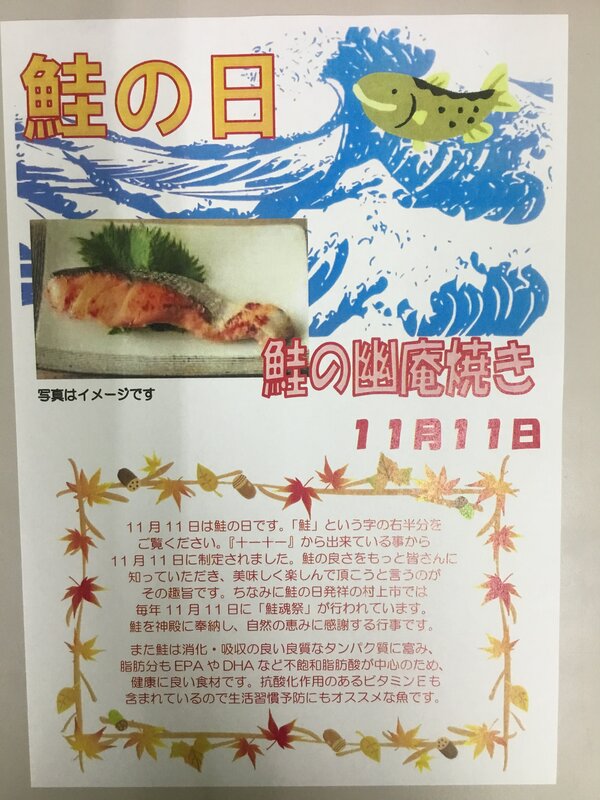 鮭の日
写真はイメージです
鮭の幽庵焼き
11月11日
11月11日は鮭の日です。「鮭」という字の右半分を
ご覧ください。『十一十一』から出来ている事から
11月11日に制定されました。鮭の良さをもっと皆さんに
知っていただき、美味しく楽しんで頂こうと言うのが
その趣旨です。ちなみに鮭の日発祥の村上市では
毎年11月11日に「鮭魂祭」が行われています。
鮭を神殿に奉納し、自然の恵みに感謝する行事です。
また鮭は消化・吸収の良い良質なタンパク質に富み、
脂肪分もEPAやDHAなど不飽和脂肪酸が中心のため、
健康に良い食材です。抗酸化作用のあるビタミンEも
含まれているので生活習慣予防にもオススメな魚です。